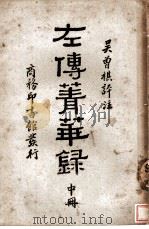 吳曾祺評註
左傳菁華錄
中冊
商務印書館發行